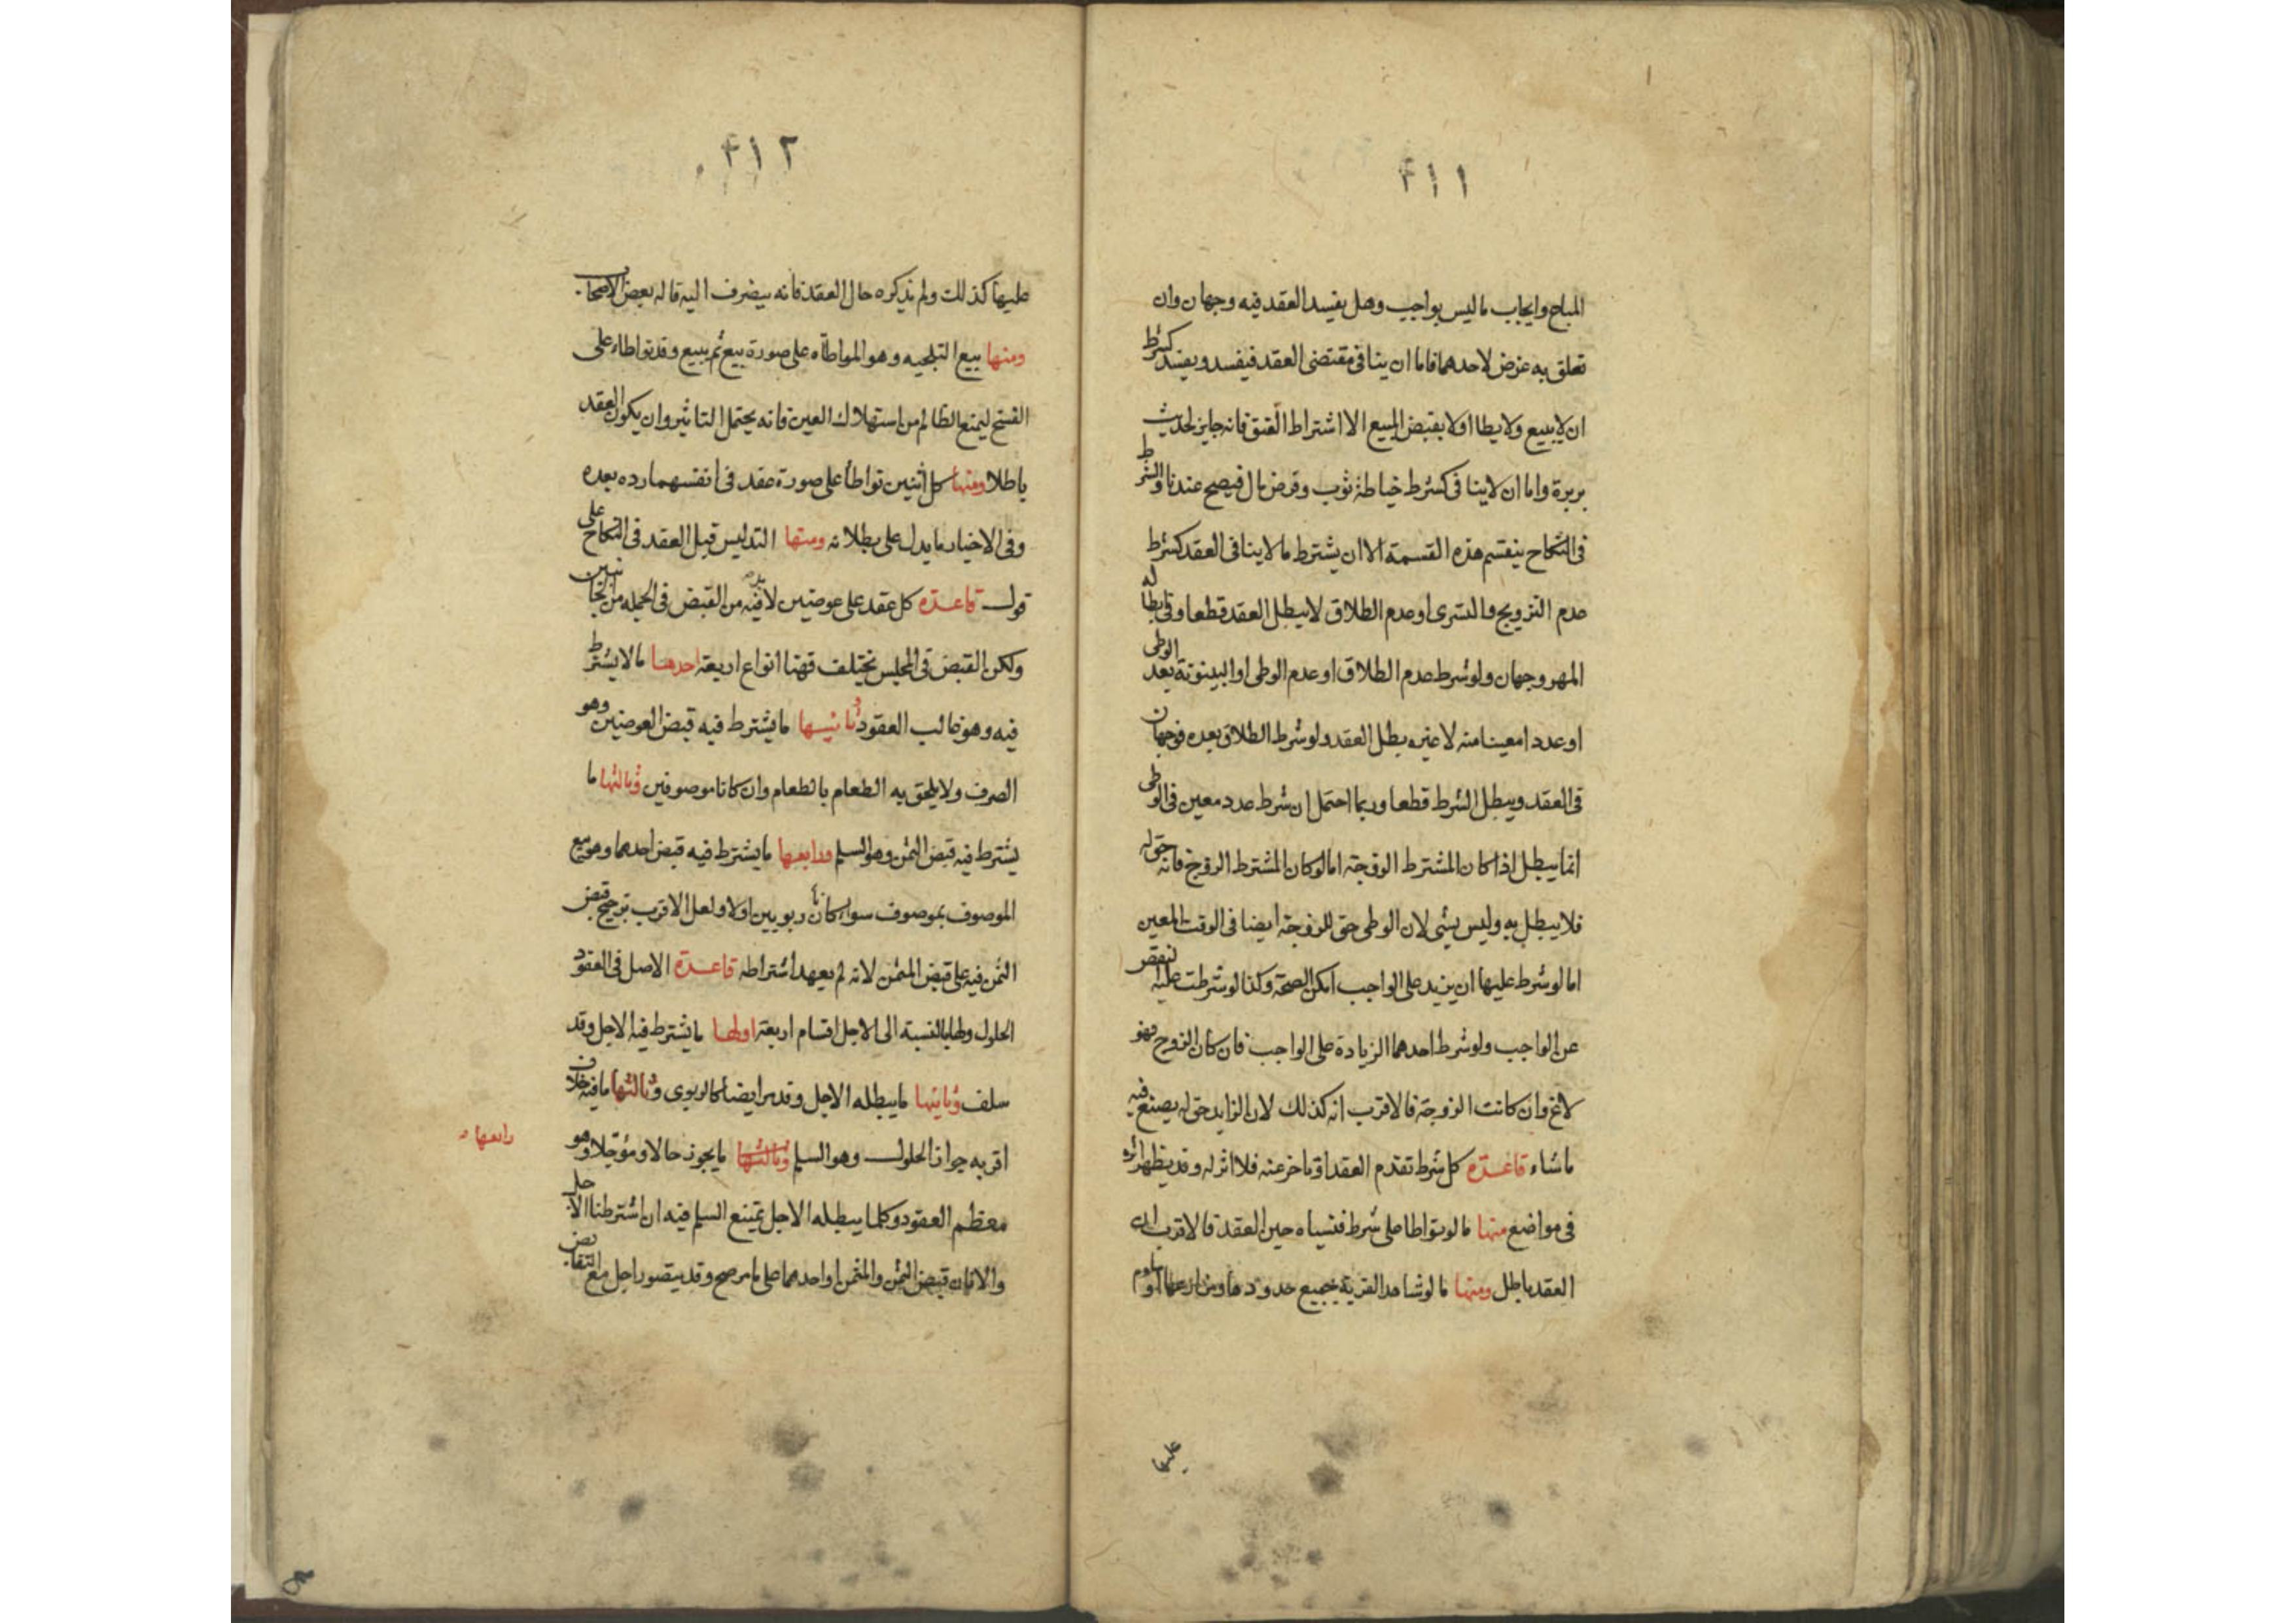 ٤١١
المباح وايجاب ما ليس بواجب وهل يفسد العقد فيه وجهان وان
تعلق به غرض لاحدهما فاما ان ينافى مقتضى العقد فيفسد ويفسد كشرط
ان لا يبيع ولا يطا اولا يقبض المبيع الا اشتراط العتق فانه جايز لحديث
بريرة واما ان لا ينافى كشرط خياطة ثوب وقرض مال فيصح عندنا والشرط
فى النكاح ينقسم هذه القسمة الا ان يشترط ما لا ينافى العقد كشرط
عدم التزويج والتسرى او عدم الطلاق لا يبطل العقد قطعا وفى ابطاله
المهر وجهان ولو شرط عدم الطلاق او عدم الوطى او البينونة بعد الوطى
او عددا معينا منه لا غيره بطل العقد ولو شرط الطلاق بعده فوجهان
فى العقد ويبطل الشرط قطعا وربما احتمل ان شرط عدد معين فى الوطى
انما يبطل اذا كان المشترط الزوجة اما لو كان المشترط الزوج فانه حق له
فلا يبطل به وليس بشى لان الوطى حق للزوجة ايضا فى الوقت المعين
اما لو شرط عليها ان يزيد على الواجب امكن الصحة وكذا لو شرطت عليه
عن الواجب ولو شرط احدهما الزيادة على الواجب فان كان الزوج فهو
لاغ وان كانت الزوجة فالاقرب انه كذلك لان الزايد حق له يصنع فيه
ما شاء قاعدة كل شرط تقدم العقد او تاخر عنه فلا اثر له وقد يظهر اثره
فى مواضع منها ما لو تواطا على شرط فنسياه حين العقد فالاقرب ان
العقد باطل ومنها ما لو شاهد القرية بجميع حدودها
عليها
٤١٢
عليها كذلك ولم يذكره حال العقد فانه يضرف اليه قاله بعض الاصحاب
ومنها بيع التلجيه وهو المواطاه على صورة بيع ثم يبيع وقد تواطاء على
الفسخ ليمنع الظالم من استهلاك العين فانه يحتمل التاثير وان يكون العقد
باطلا ومنها كل اثنين تواطأ على صورة عقد فى انفسهما رده بعده
وفى الاخبار ما يدل على بطلانه ومنها التدليس قبل العقد فى النكاح على
قول قاعدة كل عقد على عوضين لا فيه من القبض فى الجمله من الجانبين
ولكن القبض فى المجلس يختلف فهنا انواع اربعة احدها ما لا يشترط
فيه وهو غالب العقود وثانيها ما يشترط فيه قبض العوضين وهو
الصرف ولا يلحق به الطعام بالطعام وان كانا موصوفين وثالثها ما
يشترط فيه قبض الثمن وهو السلم ورابعها ما يشترط فيه قبض احدهما وهو بيع
الموصوف بموصوف سواء كانا ربويين اولا ولعل الاقرب ترجيح قبض
الثمن فيه على قبض المثمن لانه لم يعهد اشتراطه قاعدة الاصل فى العقود
الحلول ولها بالنسبة الى الاجل اقسام اربعة اولها ما يشترط فيه الاجل وقد
سلف وثانيها ما يبطله الاجل وقد مر ايضا كالربوى وثالثها ما فيه خلاف
اقربه جواز الحلول وهو السلم وثالثها ما يجوز حالا ومؤجلا وهو
رابعها
معظم العقود وكلما يبطله الاجل يمتنع السلم فيه ان اشترطنا الاجل
والا فان قبض الثمن والمثمن او احدهما على ما مر صح وقد يتصور اجل مع التقابض